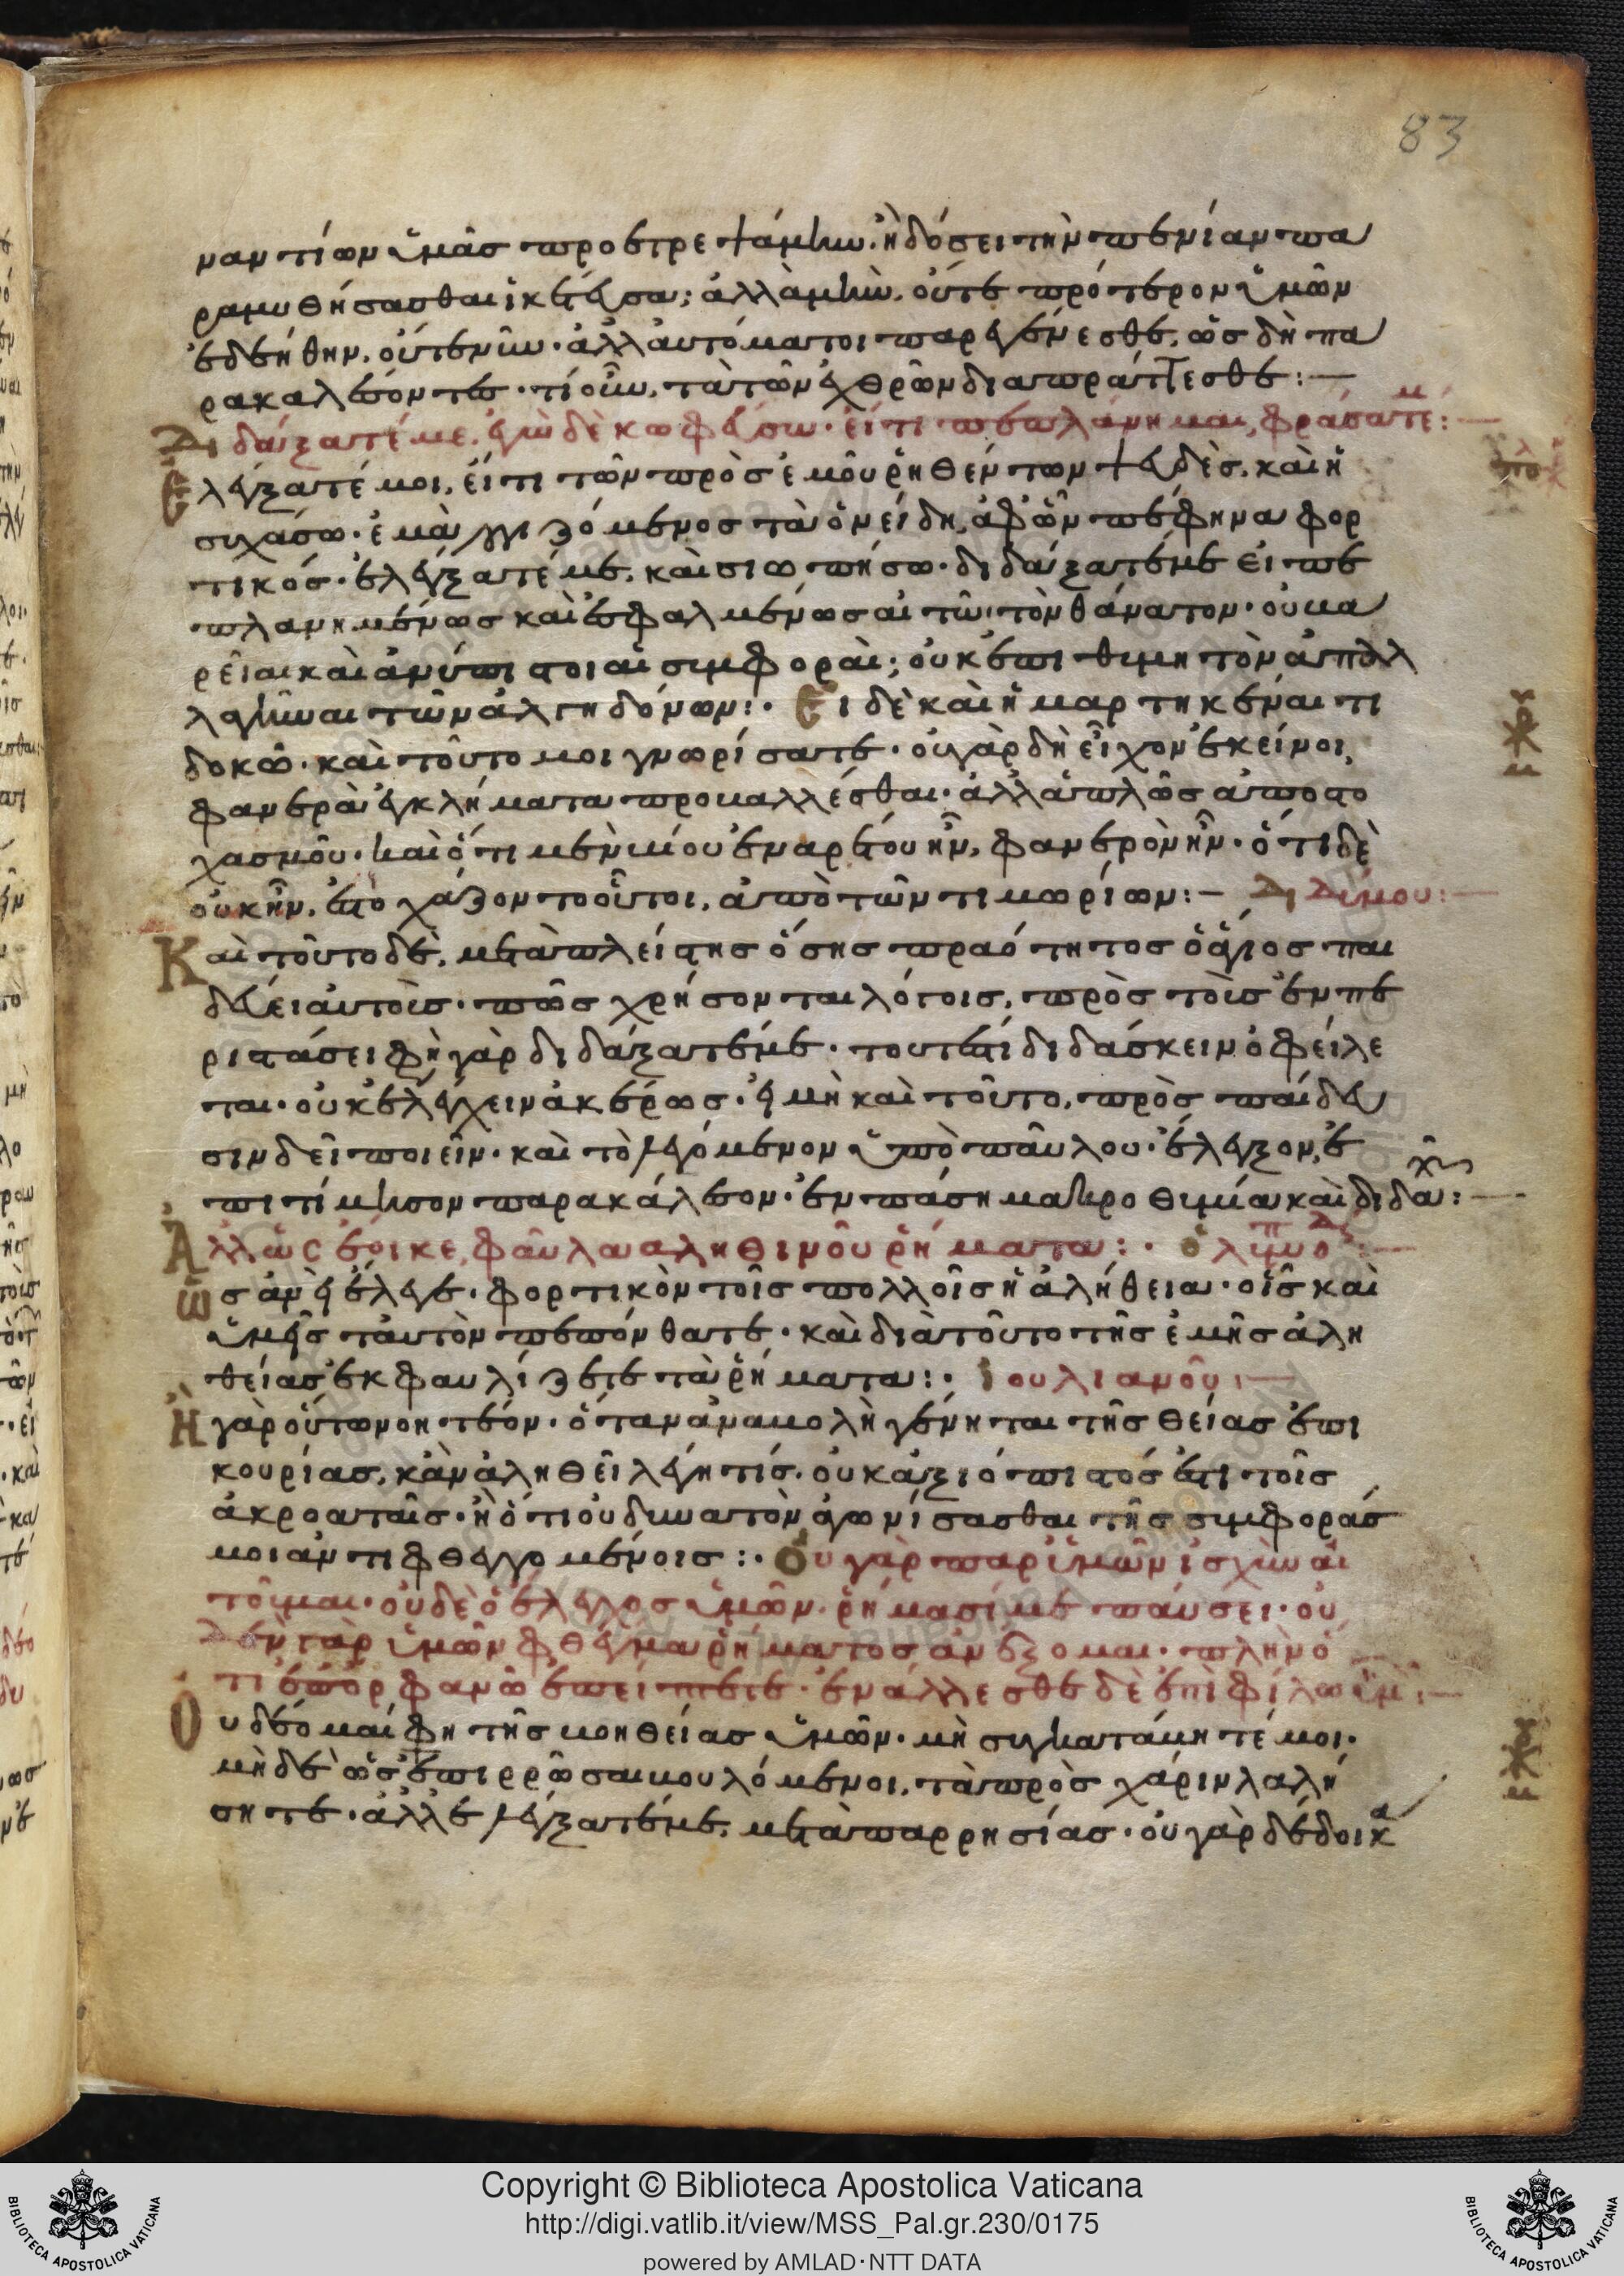 83
ναντίων ὑμᾶς προστρεψάμην. ἢ δόσει τὴν πενίαν πα
ραμυθήσασθαι ἱκέτευσα; ἀλλὰ μὴν. οὔτε πρότερον ὑμῶν
ἐδεήθην. οὔτε νῦν. ἀλλ αυτόματοι παρεγένεσθε. ὡς δὴ πα
ρακαλέσοντες. τί οὖν. τὰ τῶν ἐχθρῶν διαπράττεσθε:
Διδάξατέ με. ἐγὼ δὲ κωφεύσω. εἴ τι πεπλάνημαι, φράσατέ μ:
Ελέγξατέ μοι. εἴ τι τῶν πρὸς ἐμοῦ ῥηθέντων ψευδὲς. καὶ ἡ
συχάσω. ἐμὰ λογιζόμενος τὰ ὀνείδη. ἀφ ὧν πέφηνα φορ
τικός. ἐλέγξατέ με. καὶ σιωπήσω. διδάξατέ με εἰ πε
πλανημένως καὶ ἐσφαλμένως αἰτῶ τὸν θάνατον. οὐ βα
ρεῖαι καὶ ἀνύποιστοι αἱ συμφοραὶ; οὐκ ἐπιθυμητὸν ἀπαλ
λαγῆναι τῶν ἀλγηδόνων:. Εἰ δὲ καὶ ἡμαρτηκέναι τι
δοκῶ. καὶ τοῦτο μοι γνωρίσατε. οὐ γὰρ δὴ εἶχον ἐκείνοι,
φανερὰ ἐγκλήματα προβαλλέσθαι. ἀλλ ἁπλῶς ἀπὸ στο
χασμοῦ. καὶ ὅτι μὲν βίου ἐναρέτου ἦν, φανερὸν ἦν. ὅτι δὲ
οὐκ ἦν. ἐστοχάζοντο οὗτοι. ἀπὸ τῶν τιμωρίων:— Διδύμου:
Καὶ τοῦτο δὲ. μετὰ πλείστης ὅσης πραότητος ὁ ἅγιος παι
δεύει αὐτοὺς. πῶς χρήσονται λόγοις. πρὸς τοὺς ἐν πε
ριστάσει φὴ γὰρ διδάξατέ με. τουτέστι διδάσκειν ὀφείλε
ται. οὐκ ἐλέγχειν ἀκαίρως. εἰ μὴ καὶ τοῦτο. πρὸς παίδευ
σιν δεῖ ποιεῖν. καὶ τὸ λεγόμενον ὑπὸ παύλου. ἔλεγξον, ἐ
πιτίμησον παρακάλεσον. ἐν πάση μακροθυμία καὶ διδαχῆ:
Ἀλλ ὡς ἔοικε, φαῦλα αληθινοῦ ῥήματα:. ὀλυμπιοδ:
Ὡς ἀν εἰ ἔλεγε. φορτικὸν τοῖς πολλοῖς ἡ ἀλήθεια. οἷς καὶ
ὑμεῖς ταὐτὸν πεπόνθατε. καὶ διὰ τοῦτο τῆς ἐμῆς ἀλη
θείας ἐκφαυλίζετε τὰ ῥήματα:. Ἰουλιανοῦ:
Ἢ γὰρ οὕτω νοητέον. ὅταν ἀναβολὴ γένηται τῆς θείας ἐπι
κουρίας. κἀν ἀληθεῖ λέγη τίς. οὐκ ἀξιόπιστός ἐστι τοῖς
ἀκροαταῖς. ἢ ὅτι οὐ δυνατὸν ἀγωνίσασθαι τῆς συμφοράς
μοι ἀντιφθεγγομένοις:. Οὐ γὰρ παρ ὑμῶν ἰσχὺν αἰ
τοῦμαι. οὐδὲ ὁ ἔλεγχος ὑμῶν. ῥήμασί με παύσει. οὐ
δὲν γὰρ ὑμῶν φθέγμα ῥήματος ἀνέξομαι. πλὴν ὅ
τι ἐπ ὀρφανῶ ἐπιπίπτετε. ἐνάλλεσθε δὲ ἐπὶ φίλω ὑμῶ:
Οὐ δέομαί φη τῆς βοηθείας ὑμῶν. μὴ συγκατάβητέ μοι.
μὴδὲ ὡς ἐπιρρῶσαι βουλόμενοι. τὰ πρὸς χάριν λαλή
σητε. ἀλλ ἐλέγξατέ με. μετὰ παρρησίας. οὐ γὰρ δέδοικα
Copyright © Biblioteca Apostolica Vaticana
http://digi.vatlib.it/view/MSS_Pal.gr.230/0175
powered by AMLAD·NTT DATA
BIBLIOTECA APOSTOLICA VATICANA
BIBLIOTECA APOSTOLICA VATICANA